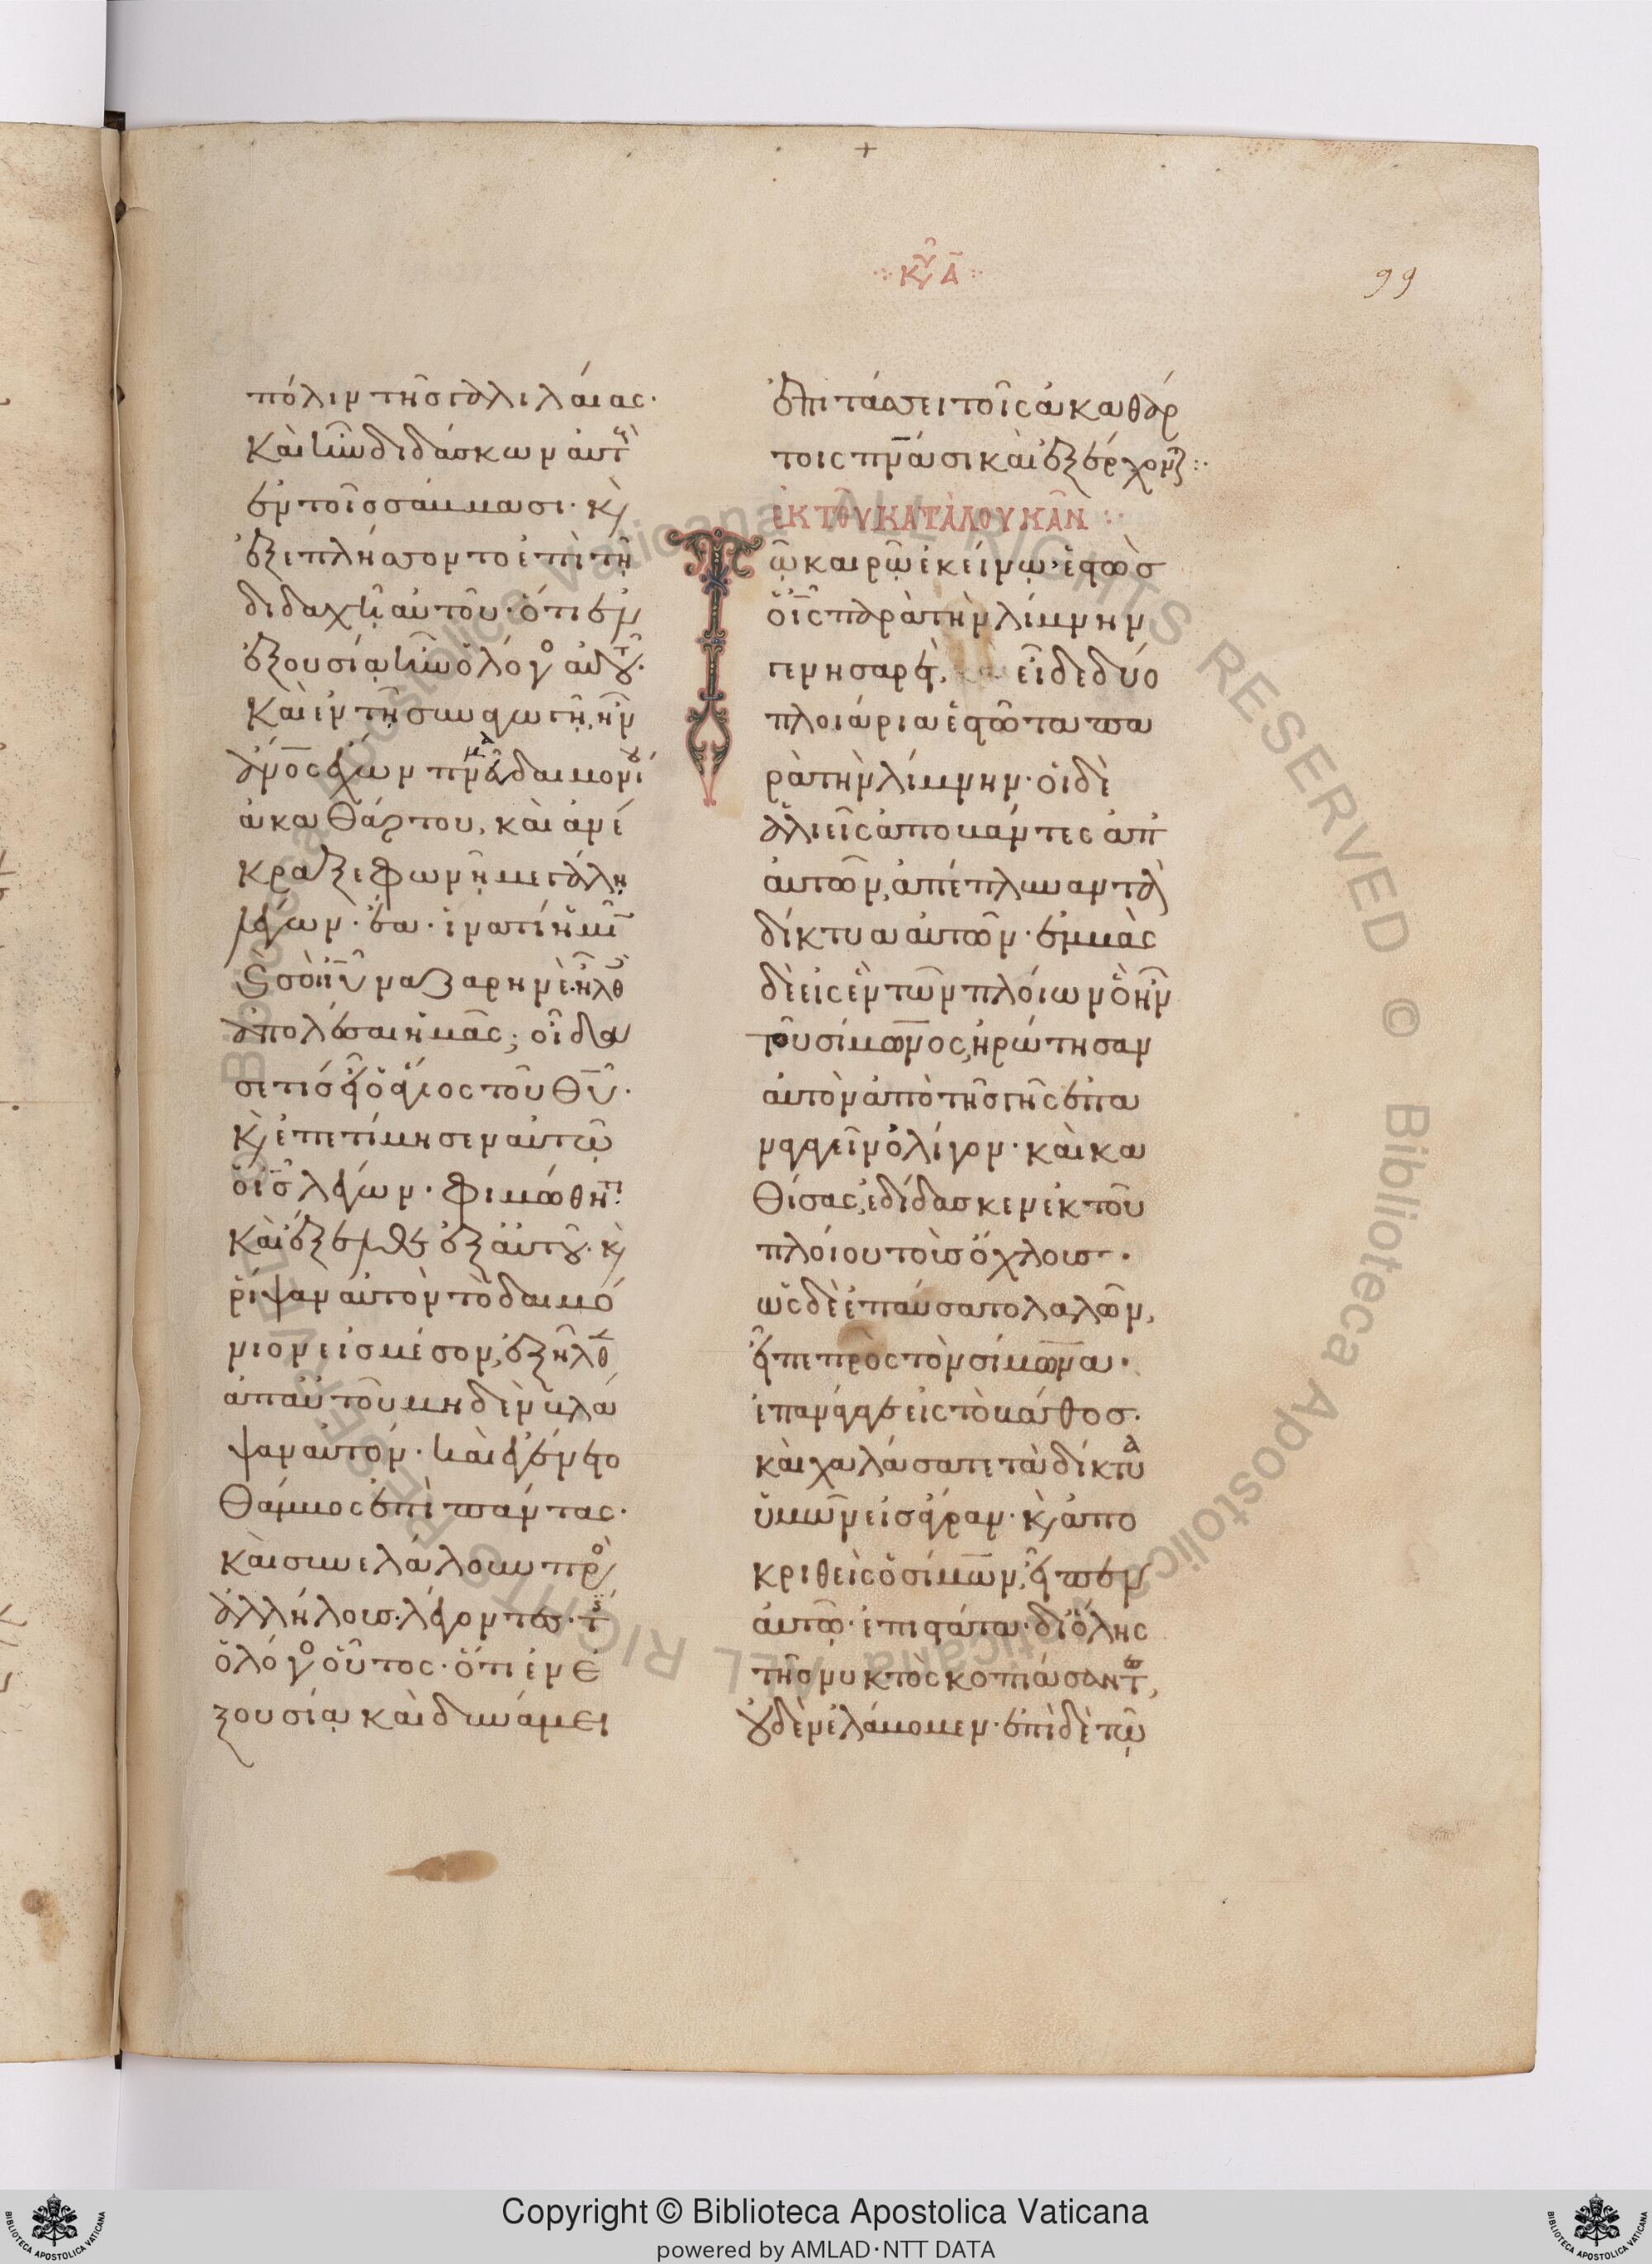 κυ α
99
πόλιν τῆς γαλιλαίας·
καὶ ἦν διδάσκων αὐτ
ἐν τοῖς σάββασι· κ
ἐξεπλήσσοντο ἐπὶ τῇ
διδαχῇ αὐτοῦ· ὅτι ἐν
ἐξουσίᾳ ἦν ὁ λόγο αὐτοῦ·
καὶ ἐν τῇ συναγωγῇ, ἦν
ἄνος ἔχων πνα δαιμονίου
ἀκαθάρτου, καὶ ἀνέ
κραξε φωνῇ μεγάλῃ
λέγων· ἔα· τί ἡμῖν
καὶ σὸι ιυ ναζαρηνέ· ἦλθε
ἀπολέσαι ἡμᾶς; οἶδα
σε τίς εἶ ὁ ἅγιος τοῦ θυ·
κ ἐπετίμησεν αὐτῷ
ὁ ις λέγων· φιμώθητι
καὶ ἔξελθε ἐξ αὐτοῦ· κ
ῥίψαν αὐτὸν τὸ δαιμό
νιον εἰς μέσον, ἐξῆλθεν
ἀπ αὐτοῦ μηδὲν βλά
ψαν αὐτόν· καὶ ἐγένετο
θάμβος ἐπὶ πάντας·
καὶ συνελάλουν προ
ἀλλήλους· λέγοντες· τί
ὁ λόγο οὗτος· ὅτι ἐν ἐ
ξουσίᾳ καὶ δυνάμει
ἐπιτάσσει τοῖς ἀκαθάρ
τοις πνάσι καὶ ἐξέρχοντ :·
ἐκ τοῦ κατὰ λουκᾶν :·
Τῷ καιρῷ ἐκείνῳ· ἑστὼς
ὁ ις παρὰ τὴν λίμνην
γεννησαρέτ, εἶδε δύο
πλοιάρια ἑστῶτα πα
ρὰ τὴν λίμνην· οἱ δὲ
ἁλιεῖς ἀποβάντες ἀπ
αὐτῶν, ἀπέπλυναν τὰ
δίκτυα αὐτῶν· ἐμβὰς
δὲ εἰς ἓν τῶν πλοίων ὃ ἦν
τοῦ σίμωνος, ἠρώτησαν
αὐτὸν ἀπὸ τῆς γῆς ἐπα
ναγαγεῖν ὀλίγον· καὶ κα
θίσας, ἐδίδασκεν ἐκ τοῦ
πλοίου τοὺς ὄχλους·
ὡς δὲ ἐπαύσατο λαλῶν,
εἶπε πρὸς τὸν σίμωνα·
ἐπανάγαγε εἰς τὸ βάθος·
καὶ χαλάσατε τὰ δίκτυα
ὑμῶν εἰς ἄγραν· κ ἀπο
κριθεὶς ὁ σίμων, εἶπεν
αὐτῷ· ἐπιστάτα· δι ὅλης
τῆς νυκτὸς κοπιάσαντες,
οὐδὲν ἐλάβομεν· ἐπὶ δὲ τῷ
Copyright © Biblioteca Apostolica Vaticana
powered by AMLAD·NTT DATA